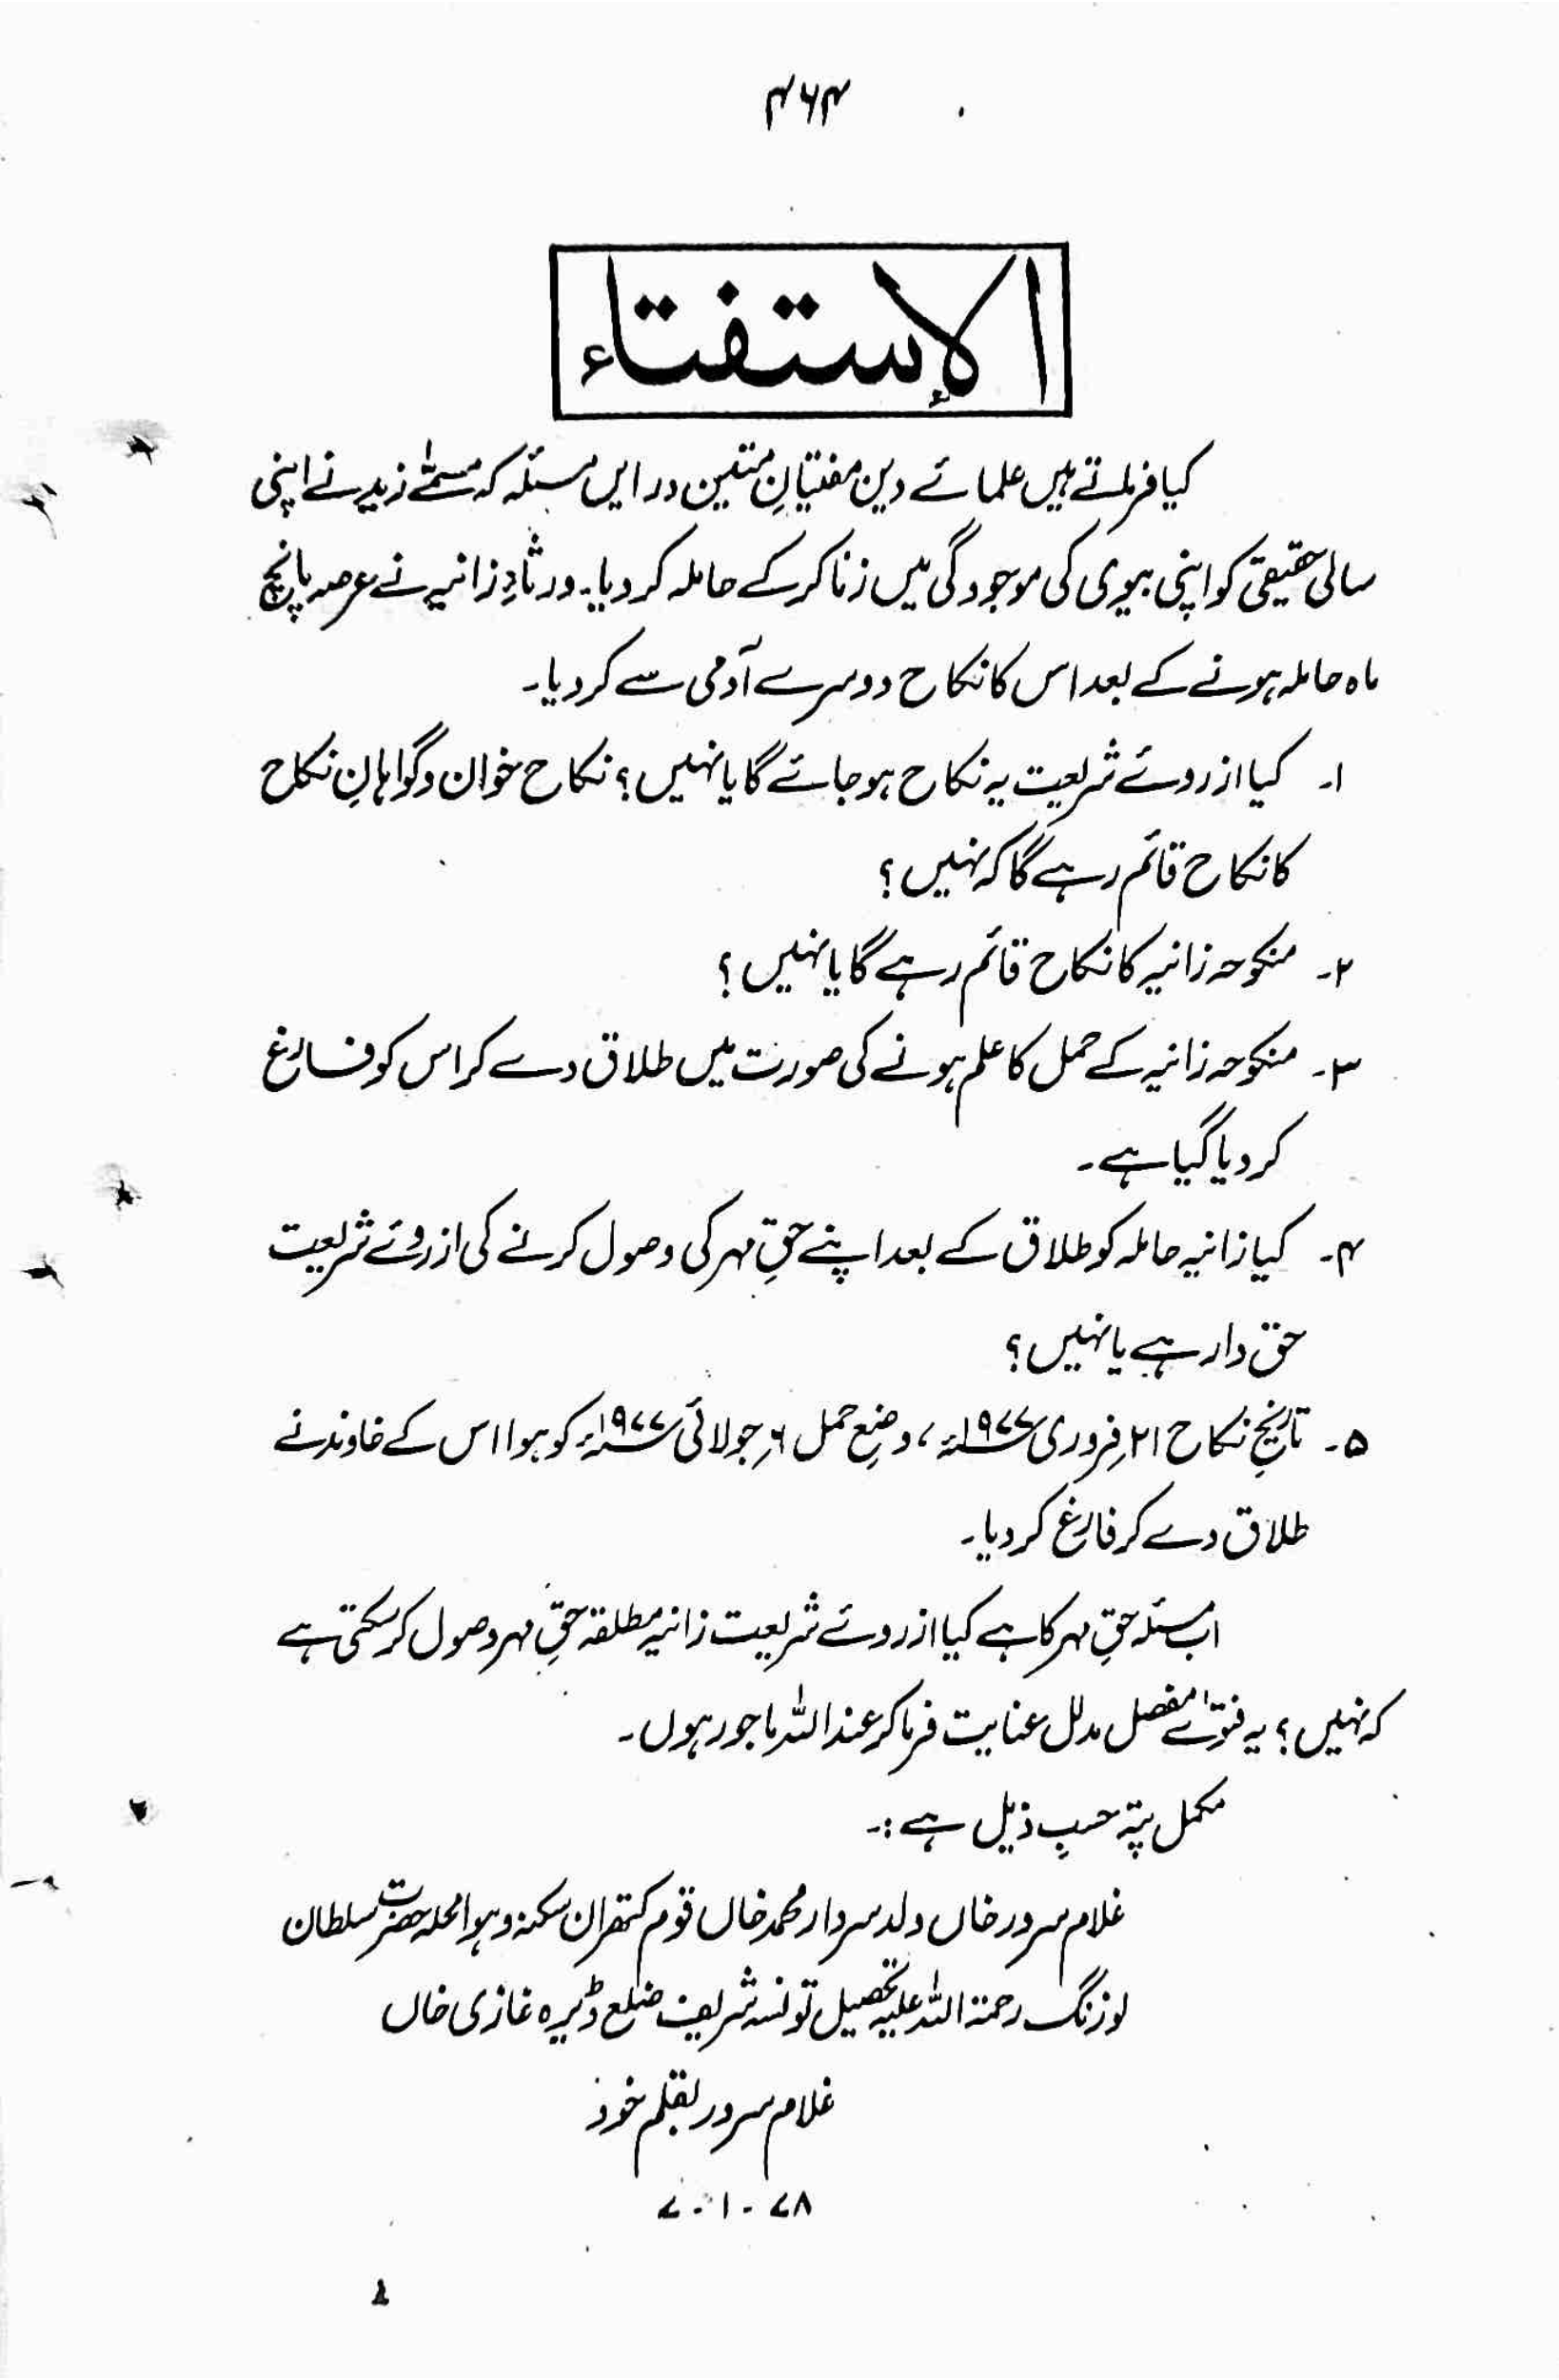 ۴۶۴
الاِستفتاء
کیا فرماتے ہیں علمائے دین مفتیانِ متین دریں مسئلہ کہ مسمّٰے زید نے اپنی
سالی حقیقی کو اپنی بیوی کی موجودگی میں زنا کر کے حاملہ کر دیا۔ ورثاءِ زانیہ نے عرصہ پانچ
ماہ حاملہ ہونے کے بعد اس کا نکاح دوسرے آدمی سے کر دیا۔
۱۔ کیا از روئے شریعت یہ نکاح ہو جائے گا یا نہیں؟ نکاح خوان و گواہانِ نکاح
کا نکاح قائم رہے گا کہ نہیں؟
۲۔ منکوحہ زانیہ کا نکاح قائم رہے گا یا نہیں؟
۳۔ منکوحہ زانیہ کے حمل کا علم ہونے کی صورت میں طلاق دے کر اس کو فارغ
کر دیا گیا ہے۔
۴۔ کیا زانیہ حاملہ کو طلاق کے بعد اپنے حقِ مہر کی وصول کرنے کی از روئے شریعت
حق دار ہے یا نہیں؟
۵۔ تاریخِ نکاح ۲۱ فروری ۱۹۷۷ء، وضعِ حمل ۶ جولائی ۱۹۷۷ء کو ہوا اس کے خاوند نے
طلاق دے کر فارغ کر دیا۔
اب مسئلہ حقِ مہر کا ہے کیا از روئے شریعت زانیہ مطلقہ حقِ مہر وصول کر سکتی ہے
کہ نہیں؟ یہ فتوٰے مفصل مدلل عنایت فرما کر عند اللہ ماجور ہوں۔
مکمل پتہ حسبِ ذیل ہے:۔
غلام سرور خاں ولد سردار محمد خاں قوم کتھران سکنہ وہوا محلہ حضرت سلطان
لوزنگ رحمۃ اللہ علیہ تحصیل تونسہ شریف ضلع ڈیرہ غازی خاں
غلام سرور بقلم خود
۷۔۱۔۷۸